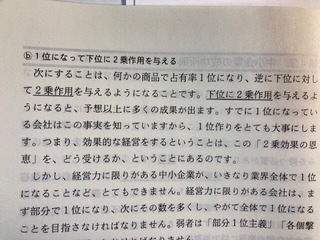 ⓑ1位になって下位に2乗作用を与える
次にすることは、何かの商品で占有率1位になり、逆に下位に対し
て2乗作用を与えるようになることです。下位に2乗作用を与えるよ
うになると、予想以上に多くの成果が出ます。すでに1位になっている
会社はこの事実を知っていますから、1位作りをとても大事にしま
す。つまり、効果的な経営をするということは、この「2乗効果の恩
恵」を、どう受けるか、ということにあるのです。
しかし、経営力に限りがある中小企業が、いきなり業界全体で1位
になることなど、とてもできません。経営力に限りがある会社は、ま
ず部分で1位になり、次にその数を多くし、やがて全体で1位になる
ことを目指さなければなりません。弱者は「部分1位主義」「各個撃